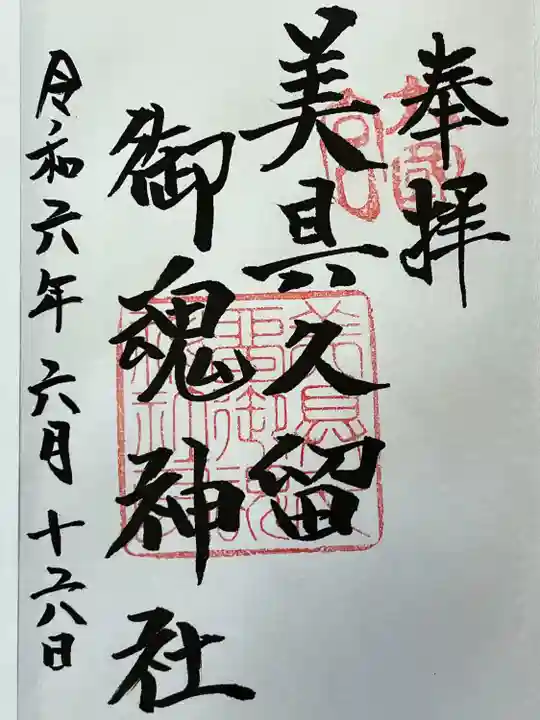 奉拝
美具久留
御魂神社
令和六年六月十六日